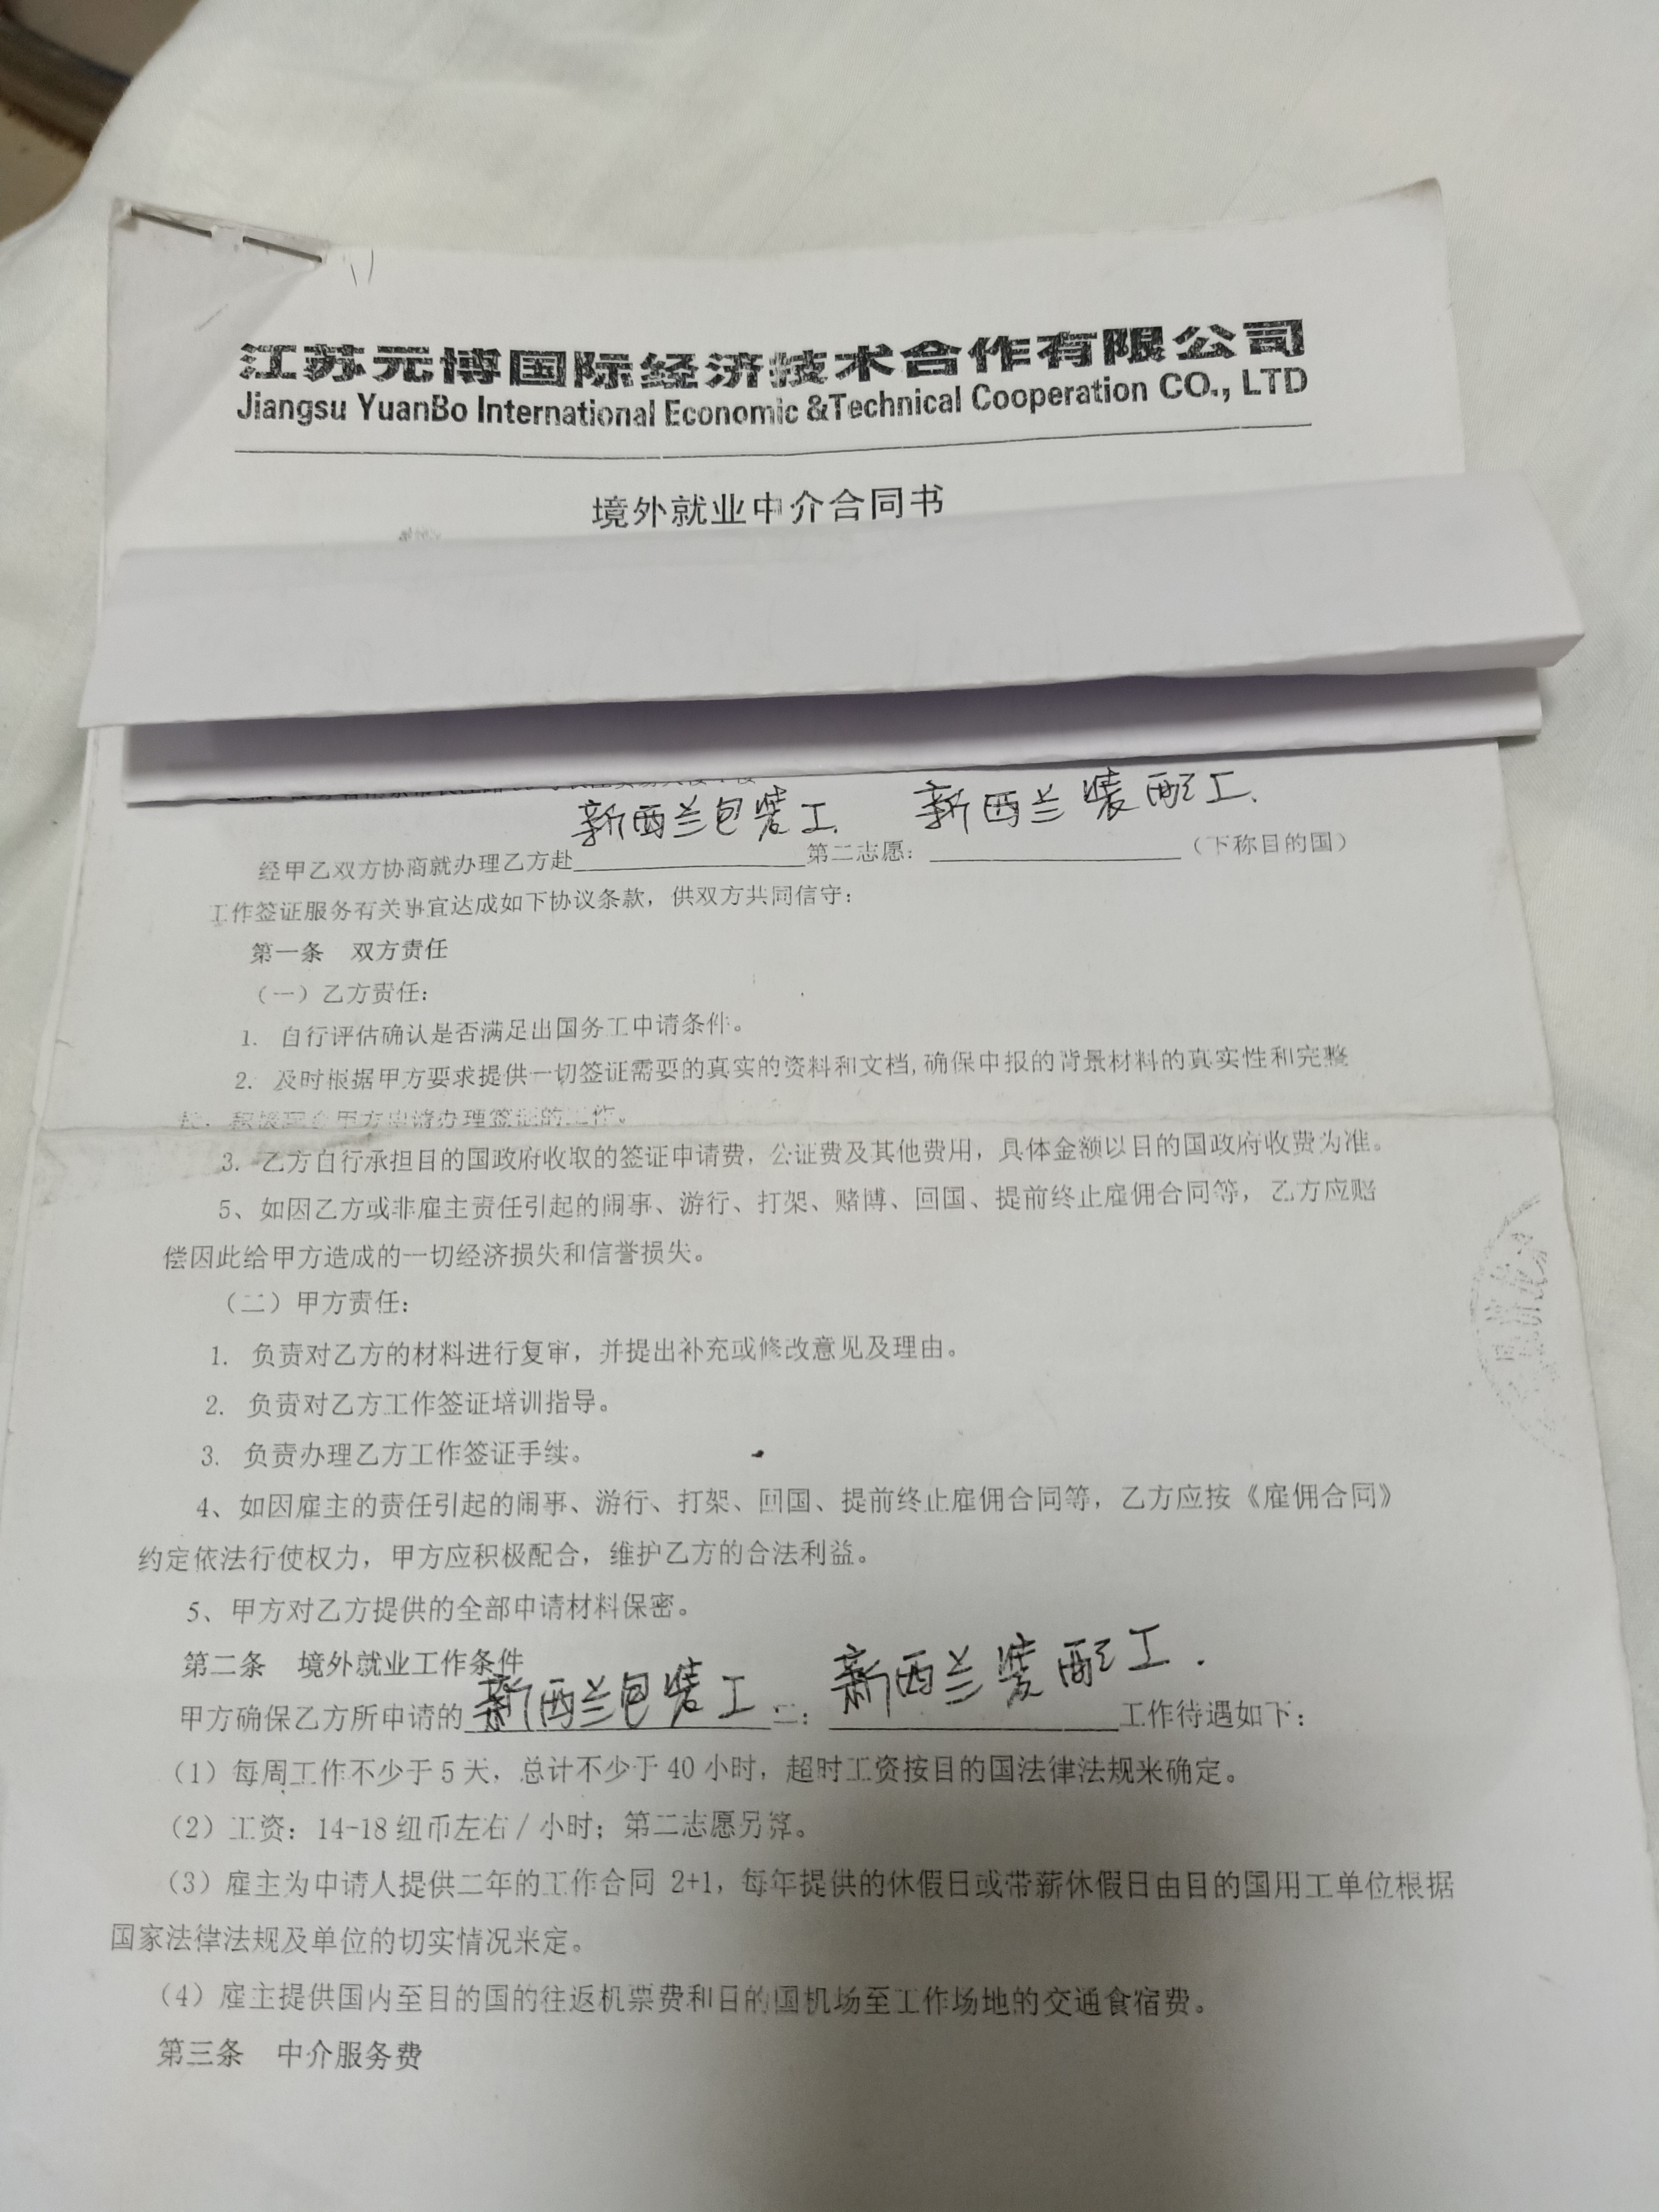 江苏元博国际经济技术合作有限公司
Jiangsu YuanBo International Economic &Technical Cooperation CO., LTD
境外就业中介合同书
新西兰包装工. 新西兰装配工.
经甲乙双方协商就办理乙方赴 第二志愿： （下称目的国）
工作签证服务有关事宜达成如下协议条款，供双方共同信守：
第一条 双方责任
（一）乙方责任：
1. 自行评估确认是否满足出国务工申请条件。
2. 及时根据甲方要求提供一切签证需要的真实的资料和文档,确保申报的背景材料的真实性和完整
甲方申请办理签证的工作。
3. 乙方自行承担目的国政府收取的签证申请费，公证费及其他费用，具体金额以目的国政府收费为准。
5、如因乙方或非雇主责任引起的闹事、游行、打架、赌博、回国、提前终止雇佣合同等，乙方应赔
偿因此给甲方造成的一切经济损失和信誉损失。
（二）甲方责任：
1. 负责对乙方的材料进行复审，并提出补充或修改意见及理由。
2. 负责对乙方工作签证培训指导。
3. 负责办理乙方工作签证手续。
4、如因雇主的责任引起的闹事、游行、打架、回国、提前终止雇佣合同等，乙方应按《雇佣合同》
约定依法行使权力，甲方应积极配合，维护乙方的合法利益。
5、甲方对乙方提供的全部申请材料保密。
第二条 境外就业工作条件
甲方确保乙方所申请的新西兰包装工. 二：新西兰装配工. 工作待遇如下：
（1）每周工作不少于 5 天，总计不少于 40 小时，超时工资按目的国法律法规来确定。
（2）工资：14-18 纽币左右 / 小时；第二志愿另算。
（3）雇主为申请人提供二年的工作合同 2+1，每年提供的休假日或带薪休假日由目的国用工单位根据
国家法律法规及单位的切实情况来定。
（4）雇主提供国内至目的国的往返机票费和目的国机场至工作场地的交通食宿费。
第三条 中介服务费